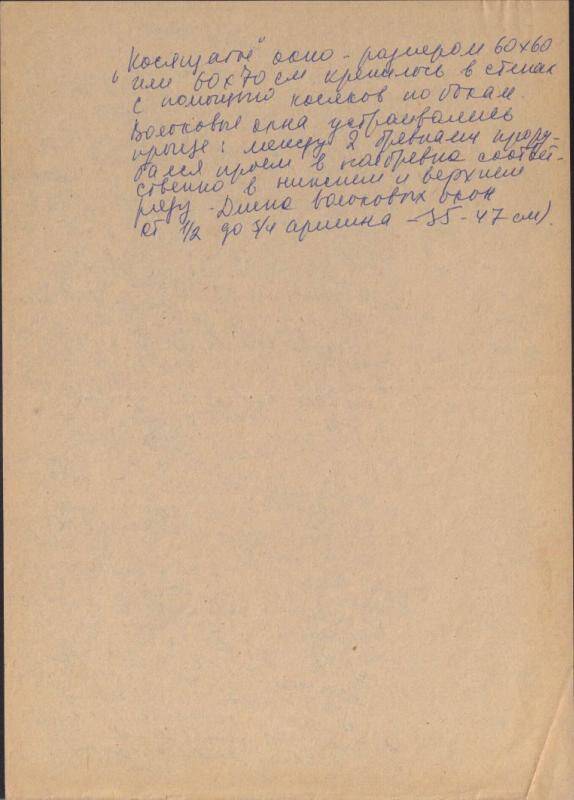 "Косящатое" окно - размером 60х60
или 60х70 см крепилось в стенах
с помощью косяков по бокам.
Волоковые окна устраивались
проще: между 2 бревнами прору-
бался проем в полбревна соответ-
ственно в нижнем и верхнем
ряду. Длина волоковых окон
от 1/2 до 3/4 аршина - 35 - 47 см)